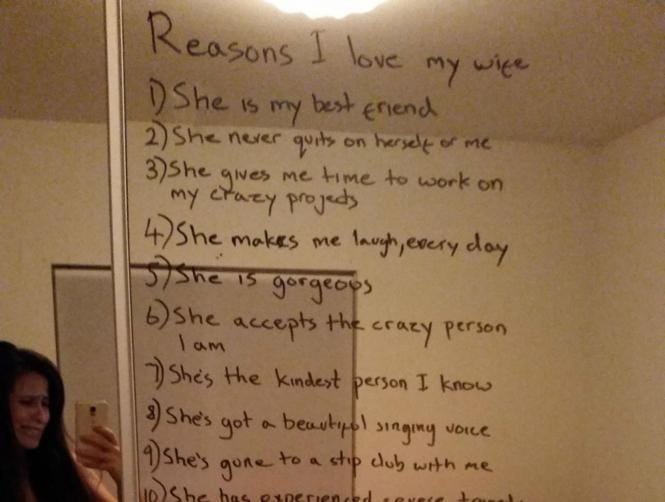 Reasons I love my wife
1) She is my best friend
2) She never quits on herself or me
3) She gives me time to work on
my crazy projects
4) She makes me laugh, every day
5) She is gorgeous
6) She accepts the crazy person
I am
7) She's the kindest person I know
8) She's got a beautiful singing voice
9) She's gone to a strip club with me
10) She has experienced severe